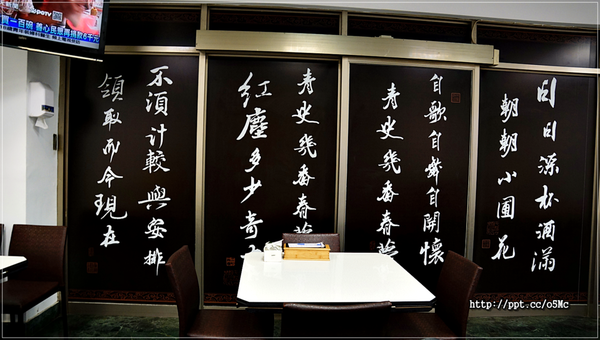 日日深杯酒滿
朝朝小圃花
自歌自舞自開懷
青史幾番春夢
青史幾番春夢
紅塵多少奇
不須計較與安排
領取而今現在
賣一百碗 善心民眾再捐款6千元
http://ppt.cc/o5Mc